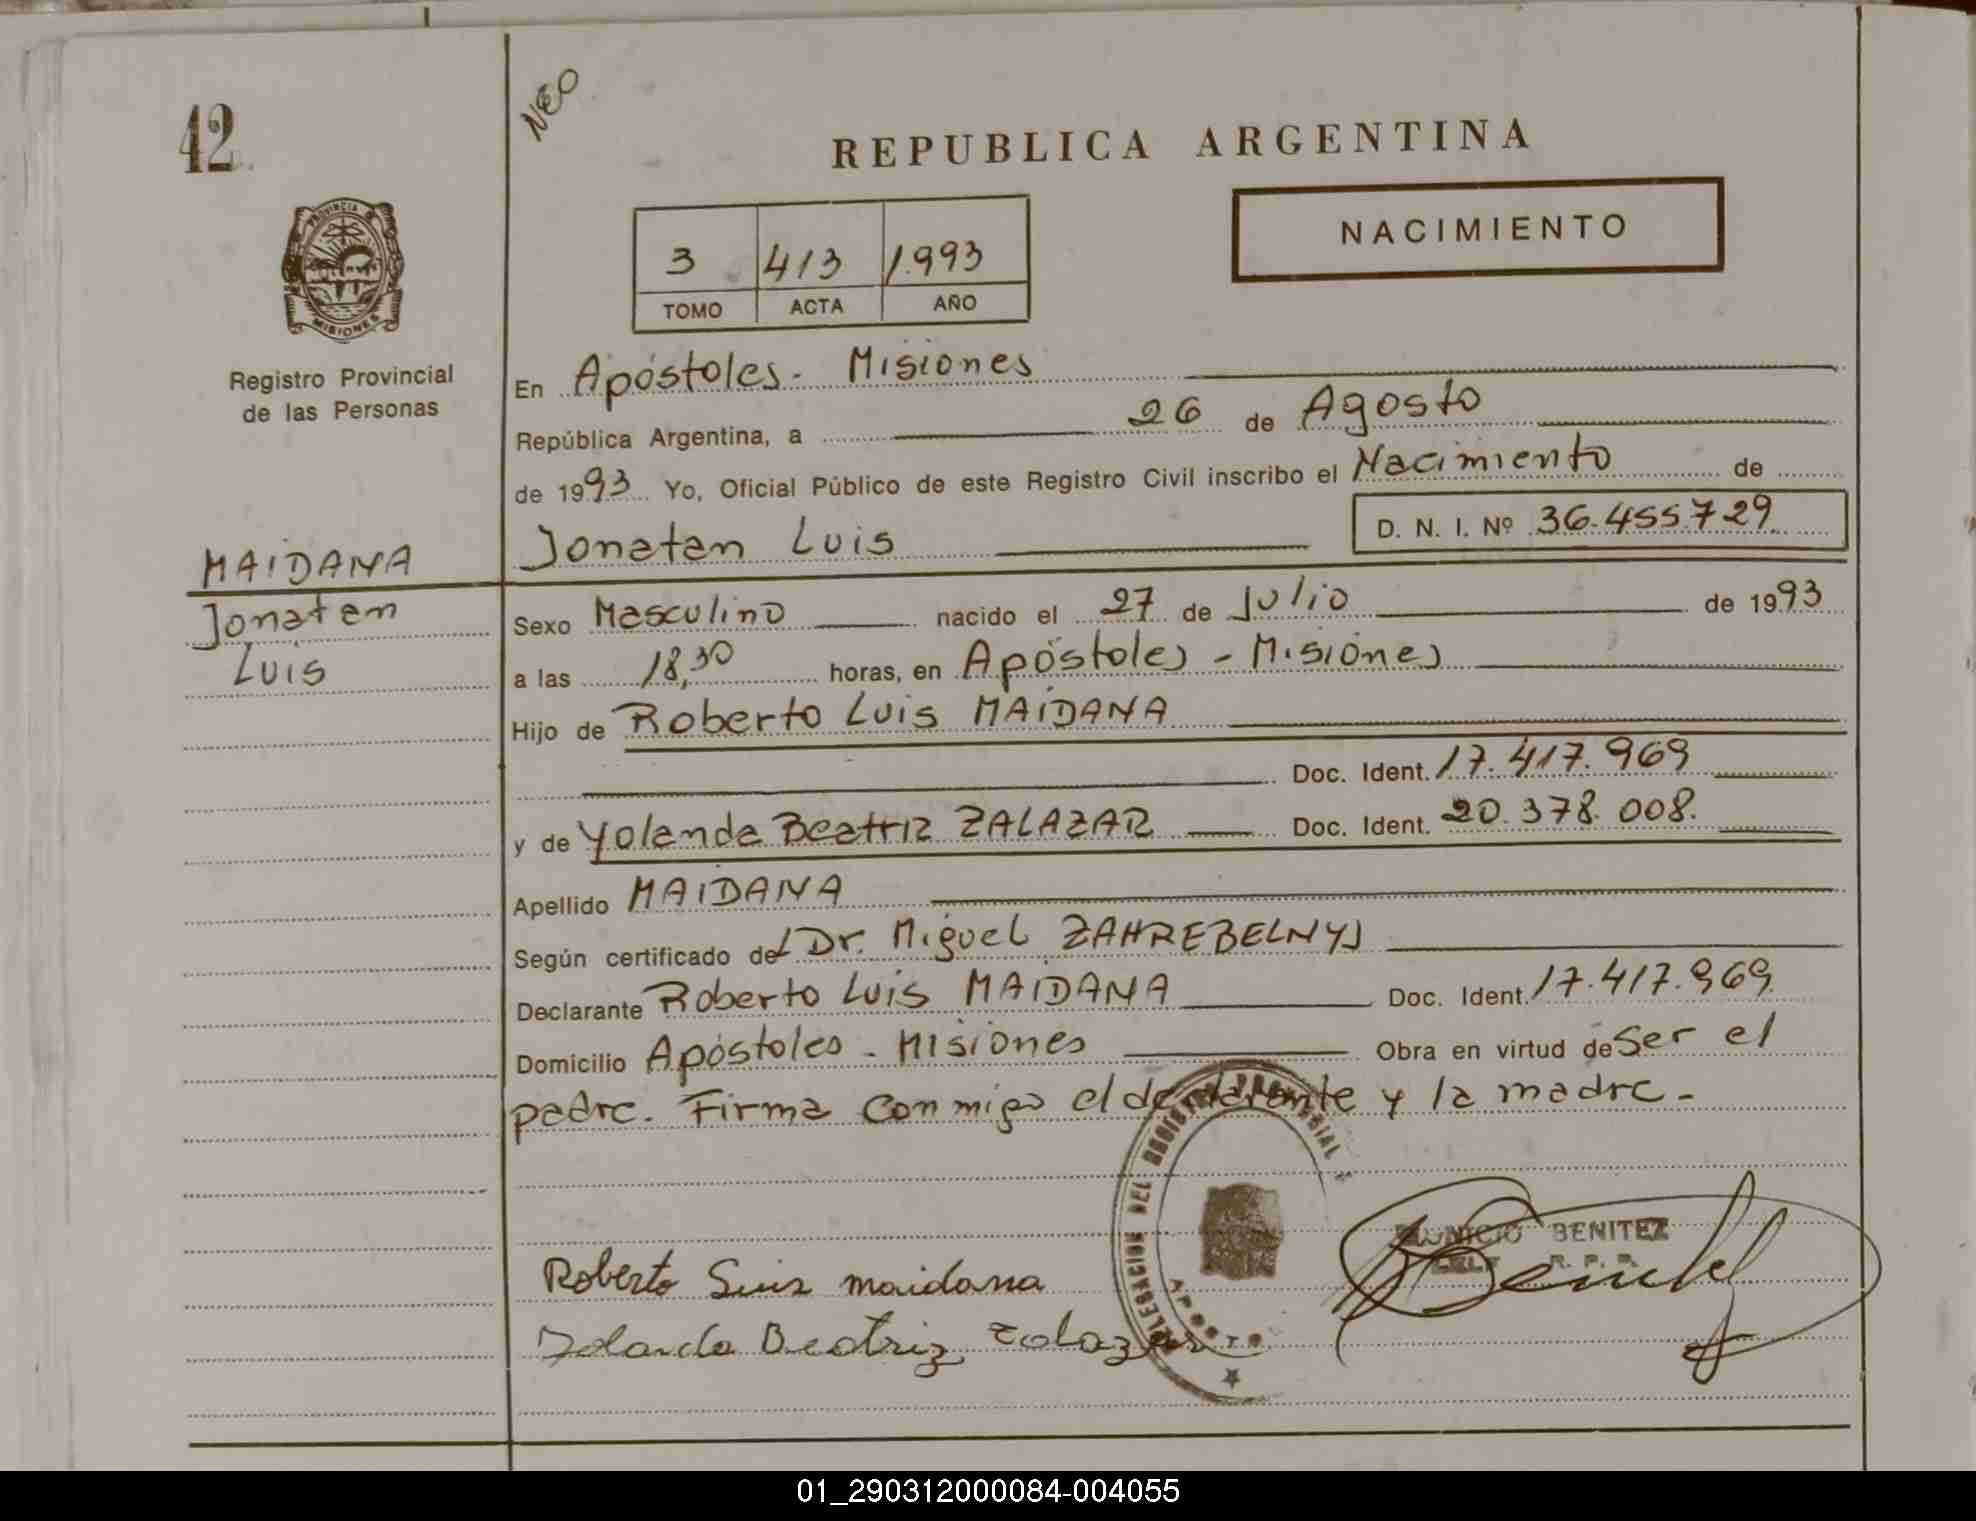 42
NEO
REPUBLICA ARGENTINA
PROVINCIA DE
MISIONES
Registro Provincial
de las Personas
3 413 1.993
TOMO ACTA AÑO
NACIMIENTO
En Apóstoles - Misiones
República Argentina, a 26 de Agosto
de 1993 Yo, Oficial Público de este Registro Civil inscribo el Nacimiento de
Jonatan Luis
D. N. I. Nº 36.455.729
MAIDANA
Jonatan
Luis
Sexo Masculino nacido el 27 de Julio de 1993
a las 18,30 horas, en Apóstoles - Misiones
Hijo de Roberto Luis MAIDANA
Doc. Ident. 17.417.969
y de Yolanda Beatriz ZALAZAR Doc. Ident. 20.378.008.
Apellido MAIDANA
Según certificado del Dr. Miguel ZAHREBELNYJ
Declarante Roberto Luis MAIDANA Doc. Ident. 17.417.969
Domicilio Apóstoles - Misiones Obra en virtud de Ser el
padre. Firma conmigo el declarante y la madre.-
DELEGACION DEL REGISTRO PROVINCIAL
BENITEZ
R. P. P.
Roberto Luis Maidana
Yolanda Beatriz Zalazar
01_290312000084-004055